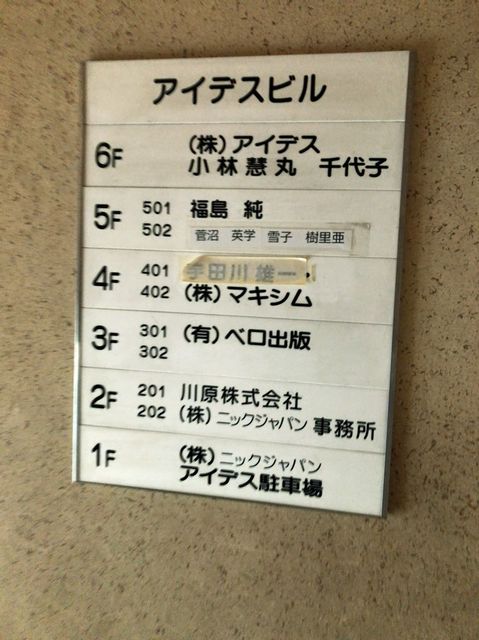 アイデスビル
6F (株)アイデス
小林慧丸 千代子
5F 501 福島 純
502 菅沼 英学 雪子 樹里亜
4F 401 宇田川雄一
402 (株)マキシム
3F 301 (有)ベロ出版
302
2F 201 川原株式会社
202 (株)ニックジャパン 事務所
1F (株)ニックジャパン
アイデス駐車場